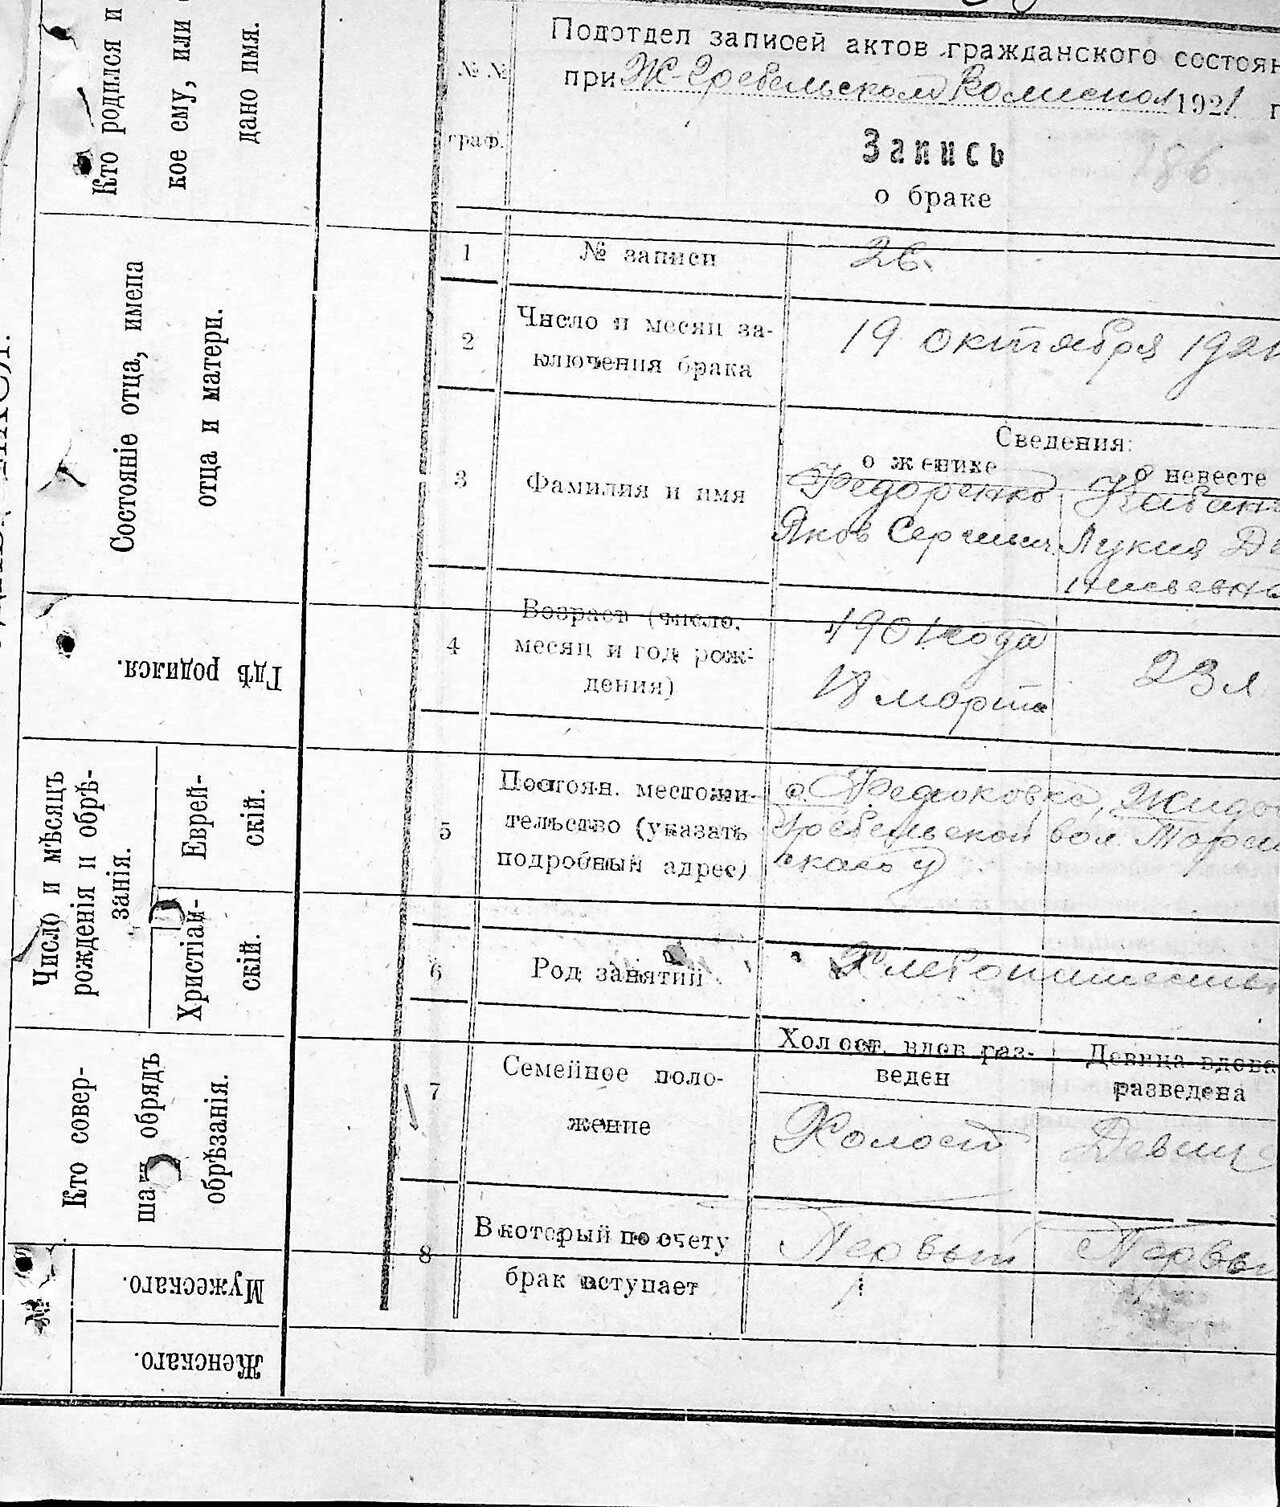 Кто родился и
кое ему, или
дано имя.
Состояніе отца, имена
отца и матери.
Гдѣ родился.
Число и мѣсяцъ
рожденія и обрѣ-
занія.
Еврей-
скій.
Христіан-
скій.
Кто совер-
шалъ обрядъ
обрѣзанія.
№
Мужескаго.
Женскаго.
Подотдел записей актов гражданского состоян
при Ж-Гребельском Волисполк 1921 г
№№
граф.
Запись
186
о браке
1 № записи 26.
2 Число и месяц за-
ключения брака
19 октября 1921
Сведения:
о женихе о невесте
3 Фамилия и имя
Федоренко Кабан
Яков Сергиев Лукия Да
ниевна
4 Возраст (число,
месяц и год рож-
дения)
1901 года
18 марта 23 л
5 Постоян. местожи-
тельство (указать
подробный адрес)
с. Федюковка, Жидо
Гребельской вол Тара
ского у
6 Род занятий Хлебопашество
7 Семейное поло-
жение
Холост, вдов, раз-
веден
Девица вдова
разведена
Холост Девиц
8 В который по счету
брак вступает
Первый Первы